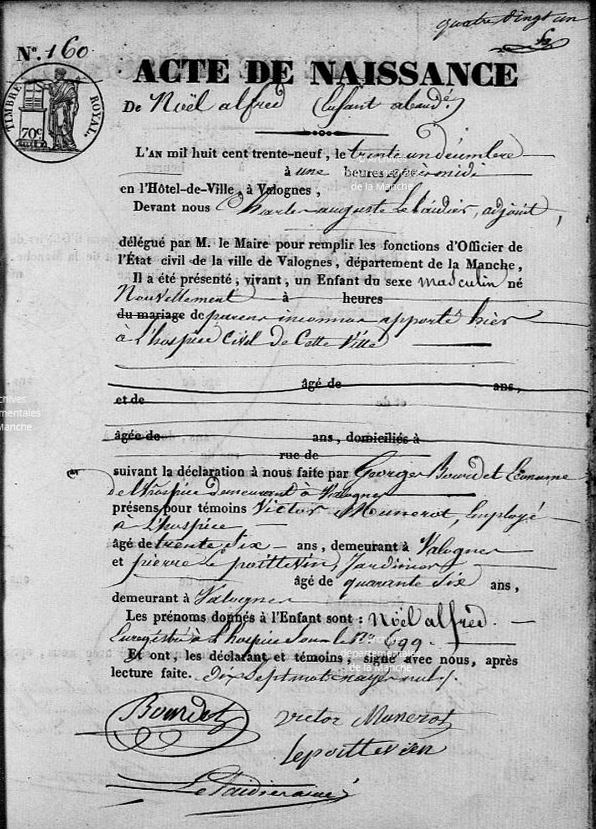 quatre vingt un
N°. 160
TIMBRE ROYAL.
70c
ACTE DE NAISSANCE
De Noël alfred (Enfant aband.é)
L'AN mil huit cent trente-neuf, le trente un décembre
à une heures après midi
en l'Hôtel-de-Ville, à Valognes,
Devant nous Charles auguste Le adjoint,
délégué par M. le Maire pour remplir les fonctions d'Officier de
l'État civil de la ville de Valognes, département de la Manche,
Il a été présenté, vivant, un Enfant du sexe masculin né
Nouvellement à heures
du mariage de parens inconnus apporté hier
à l'hospice Civil de Cette Ville
âgé de ans,
et de
âgée de ans, domiciliés à
rue de
suivant la déclaration à nous faite par Georges Bourdet Econome
de l'hospice demeurant à Valognes
présens pour témoins Victor Munerot, Employé
à l'hospice
âgé de trente Six ans, demeurant à Valognes
et pierre Le poittevin, Jardinier
âgé de quarante Six ans,
demeurant à Valognes
Les prénoms donnés à l'Enfant sont : Noël alfred.
Enregistré à l'hospice Sous le N° 699.
Et ont, les déclarant et témoins, signé avec nous, après
lecture faite. Dix Sept mots rayés nuls.
Bourdet
victor Munerot
lepoittevin
archives
départementales
de la Manche